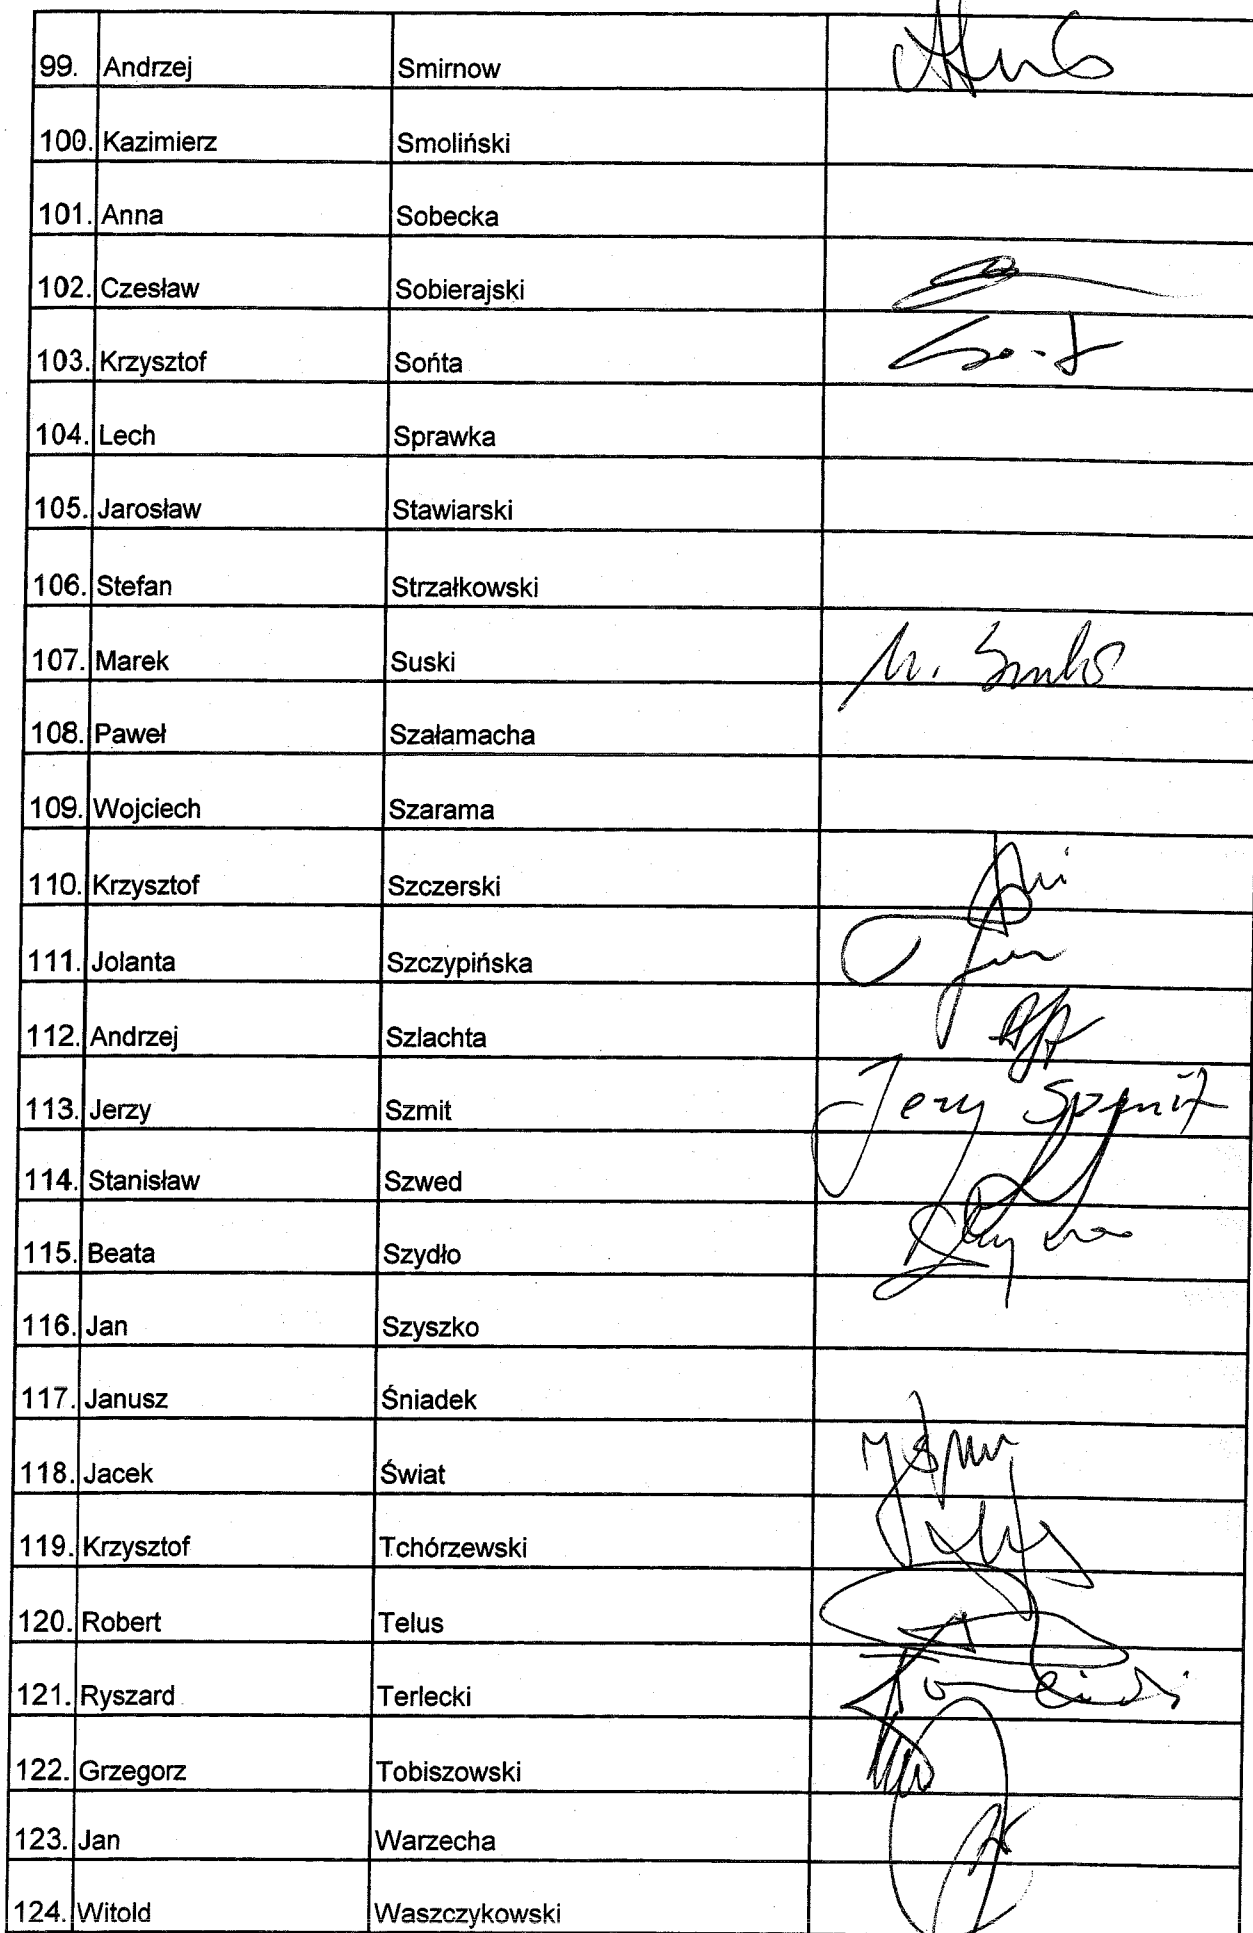 99. Andrzej Smirnow
100. Kazimierz Smoliński
101. Anna Sobecka
102. Czesław Sobierajski
103. Krzysztof Sońta
104. Lech Sprawka
105. Jarosław Stawiarski
106. Stefan Strzałkowski
107. Marek Suski
108. Paweł Szałamacha
109. Wojciech Szarama
110. Krzysztof Szczerski
111. Jolanta Szczypińska
112. Andrzej Szlachta
113. Jerzy Szmit Jerzy Szmit
114. Stanisław Szwed
115. Beata Szydło
116. Jan Szyszko
117. Janusz Śniadek
118. Jacek Świat
119. Krzysztof Tchórzewski
120. Robert Telus
121. Ryszard Terlecki
122. Grzegorz Tobiszowski
123. Jan Warzecha
124. Witold Waszczykowski